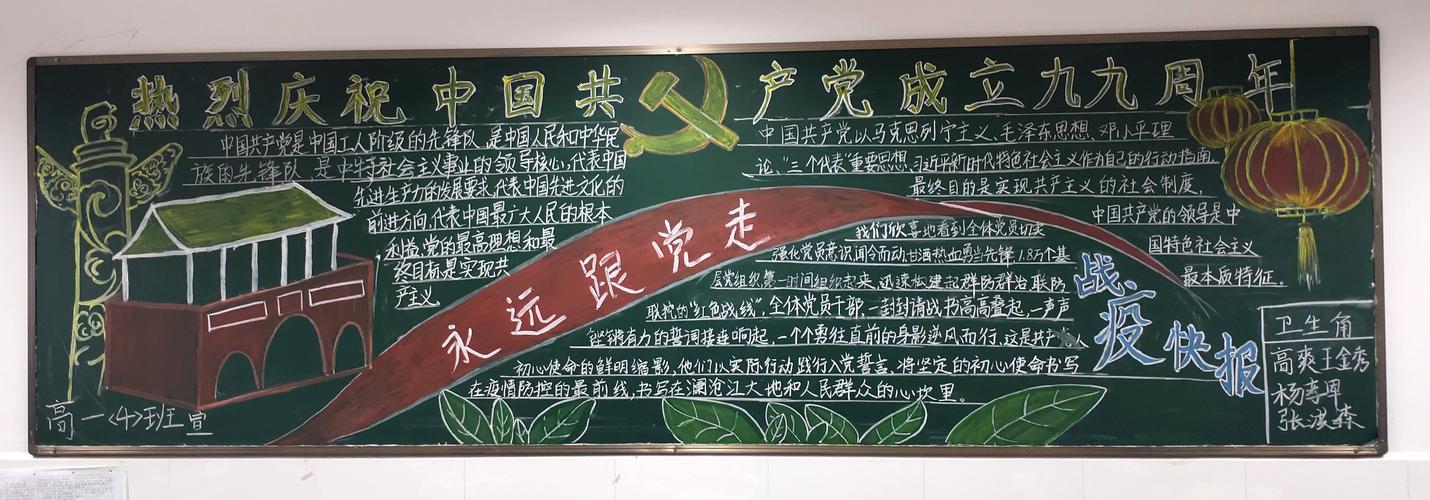 热烈庆祝中国共产党成立九九周年
中国共产党是中国工人阶级的先锋队,是中国人民和中华民
族的先锋队,是中牛寺社会主义事业的领导核心,代表中国
先进生产力的发展要求,代表中国先进文化的
前进方向,代表中国最广大人民的根本
利益,党的最高理想和最
终目标是实现共
产主义
中国共产党以马克思列宁主义、毛泽东思想、邓小平理
论、“三个代表”重要思想、习近平新时代特色社会主义作为自己的行动指南,
最终目的是实现共产主义的社会制度,
中国共产党的领导是中
国特色社会主义
最本质特征。
永远跟党走
我们欣喜地看到全体党员切实
强化党员意识,闻令而动,甘洒热血勇当先锋,1.87万个基
层党组织第一时间组织起来,迅速构建起群防群治、联防
联控的“红色战线”,全体党员干部,一封封请战书高高叠起,一声声
铿锵有力的誓词接连响起,一个个勇往直前的身影逆风而行,这是共产人
初心使命的鲜明缩影,他们以实际行动践行入党誓言,将坚定的初心使命书写
在疫情防控的最前线,书写在澜沧江大地和人民群众的心坎里。
战疫快报
卫生角
高爽王金秀
杨
张森
高一<4>班宣